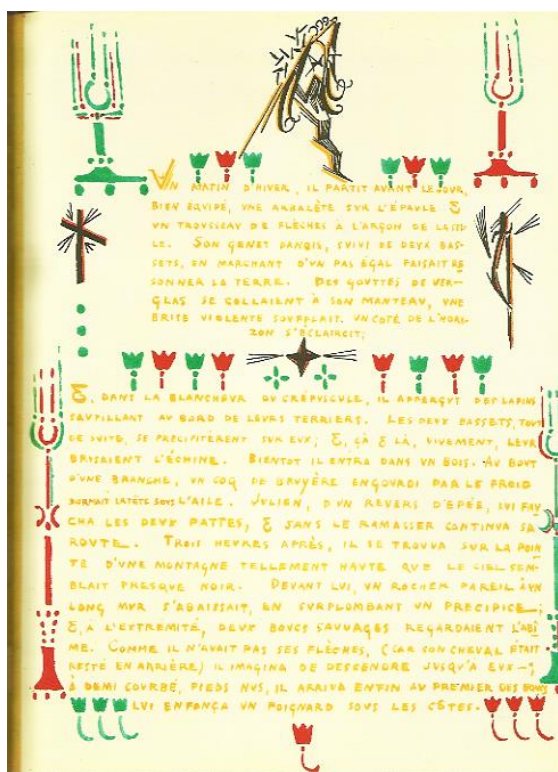 UN MATIN D'HIVER, IL PARTIT AVANT LE JOUR,
BIEN ÉQUIPÉ, UNE ARBALÈTE SUR L'ÉPAULE &
UN TROUSSEAU DE FLÈCHES À L'ARÇON DE LA SEL
LE. SON GENET DANOIS, SUIVI DE DEUX BAS-
SETS, EN MARCHANT D'UN PAS ÉGAL FAISAIT RE
SONNER LA TERRE. DES GOUTTES DE VER-
GLAS SE COLLAIENT À SON MANTEAU, UNE
BRISE VIOLENTE SOUFFLAIT. UN COTÉ DE L'HORI-
ZON S'ÉCLAIRCIT;
&, DANS LA BLANCHEUR DU CRÉPUSCULE, IL APPERÇUT DES LAPINS
SAUTILLANT AU BORD DE LEURS TERRIERS. LES DEUX BASSETS, TOUT
DE SUITE, SE PRÉCIPITÈRENT SUR EUX; &, ÇÀ & LÀ, VIVEMENT, LEUR
BRISAIENT L'ÉCHINE. BIENTOT IL ENTRA DANS UN BOIS. AU BOUT
D'UNE BRANCHE, UN COQ DE BRUYÈRE ENGOURDI PAR LE FROID
DORMAIT LA TÊTE SOUS L'AILE. JULIEN, D'UN REVERS D'ÉPÉE, LUI FAU
CHA LES DEUX PATTES, & SANS LE RAMASSER CONTINUA SA
ROUTE. TROIS HEURES APRÈS, IL SE TROUVA SUR LA POIN
TE D'UNE MONTAGNE TELLEMENT HAUTE QUE LE CIEL SEM
BLAIT PRESQUE NOIR. DEVANT LUI, UN ROCHER PAREIL À UN
LONG MUR S'ABAISSAIT, EN SURPLOMBANT UN PRÉCIPICE;
&, À L'EXTRÉMITÉ, DEUX BOUCS SAUVAGES REGARDAIENT L'ABÎ
ME. COMME IL N'AVAIT PAS SES FLÈCHES, (CAR SON CHEVAL ÉTAIT
RESTÉ EN ARRIÈRE) IL IMAGINA DE DESCENDRE JUSQU'À EUX–;
À DEMI COURBÉ, PIEDS NUS, IL ARRIVA ENFIN AU PREMIER DES BOUCS
LUI ENFONÇA UN POIGNARD SOUS LES CÔTES.